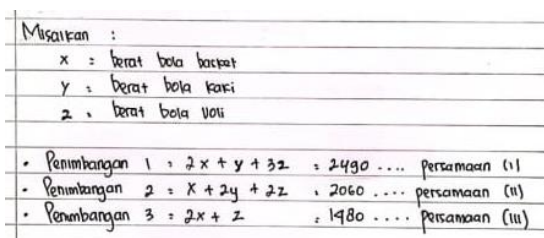 Misalkan :
x = berat bola basket
y = berat bola kaki
z = berat bola voli
• Penimbangan 1 = 2x + y + 3z = 2490 .... persamaan (i)
• Penimbangan 2 = x + 2y + 2z = 2060 .... persamaan (ii)
• Penimbangan 3 = 2x + z = 1480 .... persamaan (iii)